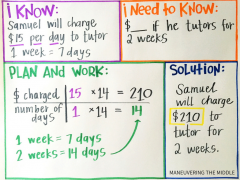 I KNOW:
Samuel will charge
$15 per day to tutor
1 week = 7 days
I Need to Know:
$__ if he tutors for
2 weeks
PLAN AND WORK:
$ charged 15 ×14 = 210
number of days 1 ×14 = 14
1 week = 7 days
2 weeks = 14 days
SOLUTION:
Samuel
will charge
$210 to
tutor for
2 weeks.
MANEUVERING THE MIDDLE